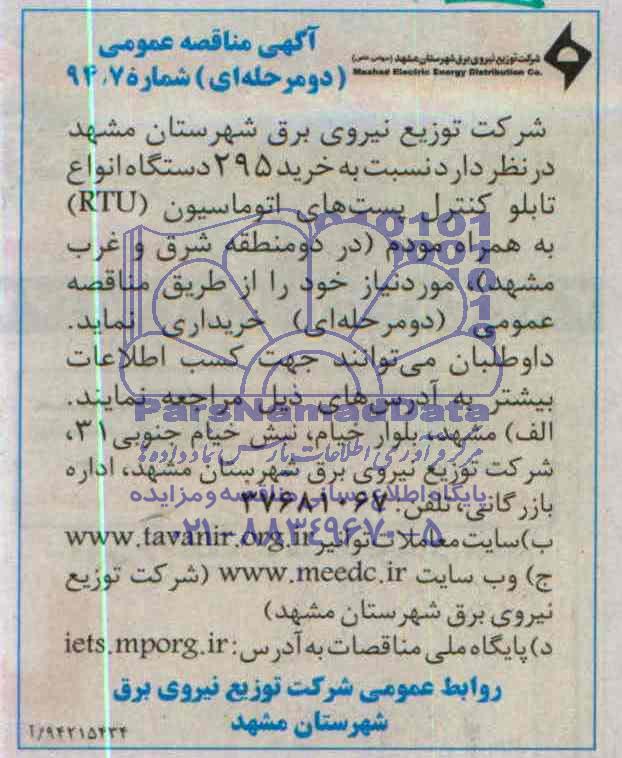 شرکت توزیع نیروی برق شهرستان مشهد (سهامی خاص)
Mashad Electric Energy Distribution Co.
آگهی مناقصه عمومی
(دومرحله‌ای) شماره ۹۴۰۷
شرکت توزیع نیروی برق شهرستان مشهد
در نظر دارد نسبت به خرید ۲۹۵ دستگاه انواع
تابلو کنترل پست‌های اتوماسیون (RTU)
به همراه مودم (در دومنطقه شرق و غرب
مشهد)، موردنیاز خود را از طریق مناقصه
عمومی (دومرحله‌ای) خریداری نماید.
داوطلبان می‌توانند جهت کسب اطلاعات
بیشتر به آدرس‌های ذیل مراجعه نمایند.
ParsNamadData
الف) مشهد، بلوار خیام، نبش خیام جنوبی ۳۱،
مرکز فرآوری اطلاعات پارس نماد داده‌ها
شرکت توزیع نیروی برق شهرستان مشهد، اداره
پایگاه اطلاع رسانی مناقصه و مزایده
بازرگانی، تلفن: ۳۷۶۸۱۰۶۷
۰۲۱-۸۸۳۴۹۶۷۰-۵
ب) سایت معاملات توانیر www.tavanir.org.ir
ج) وب سایت www.meedc.ir (شرکت توزیع
نیروی برق شهرستان مشهد)
د) پایگاه ملی مناقصات به آدرس: iets.mporg.ir
روابط عمومی شرکت توزیع نیروی برق
شهرستان مشهد
۹۴۲۱۵۴۳۴/آ